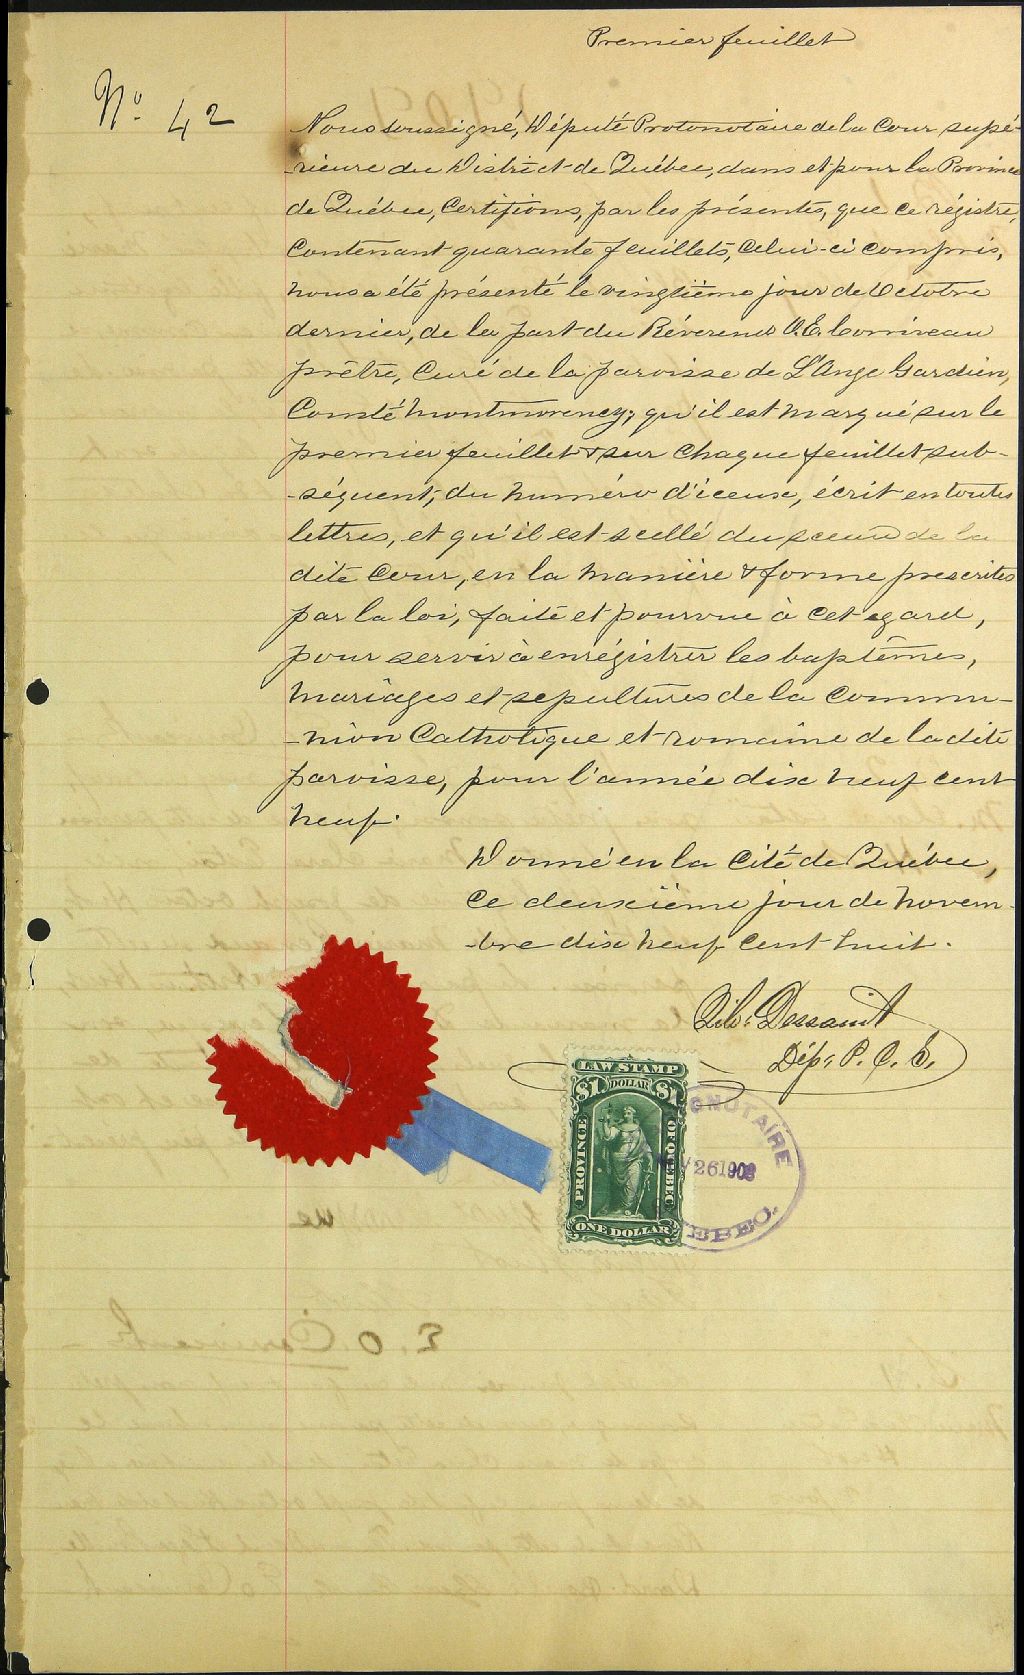 Premier feuillet
No. 42
Nous soussigné, Député Protonotaire de la Cour supé-
-rieure du District de Québec, dans et pour la Province
de Québec, Certifions, par les présentes, que ce régistre,
Contenant quarante feuillets, Celui-ci compris,
nous a été présenté le vingtième jour de Octobre
dernier, de la part du Révérend O.E. Corriveau
prêtre, Curé de la paroisse de L'Ange Gardien,
Comté Montmorency; qu'il est marqué sur le
premier feuillet & sur chaque feuillet sub-
-séquent, du numéro d'iceux, écrit en toutes
lettres, et qu'il est scellé du sceau de la
dite Cour, en la manière & forme prescrites
par la loi, faite et pourvue à cet egard,
pour servir à enrégistrer les baptêmes,
mariages et sepultures de la Commu-
-nion Catholique et romaine de la dite
paroisse, pour l'année dix neuf cent
neuf.
Donné en la Cité de Québec,
Ce deuxième jour de novem-
-bre dix neuf cent huit.
Dessaint
Dép. P. C. S.
LAW STAMP
$1 DOLLAR $1
PROVINCE OF QUEBEC
ONE DOLLAR
ONOTAIRE
26 1908
EBEC.